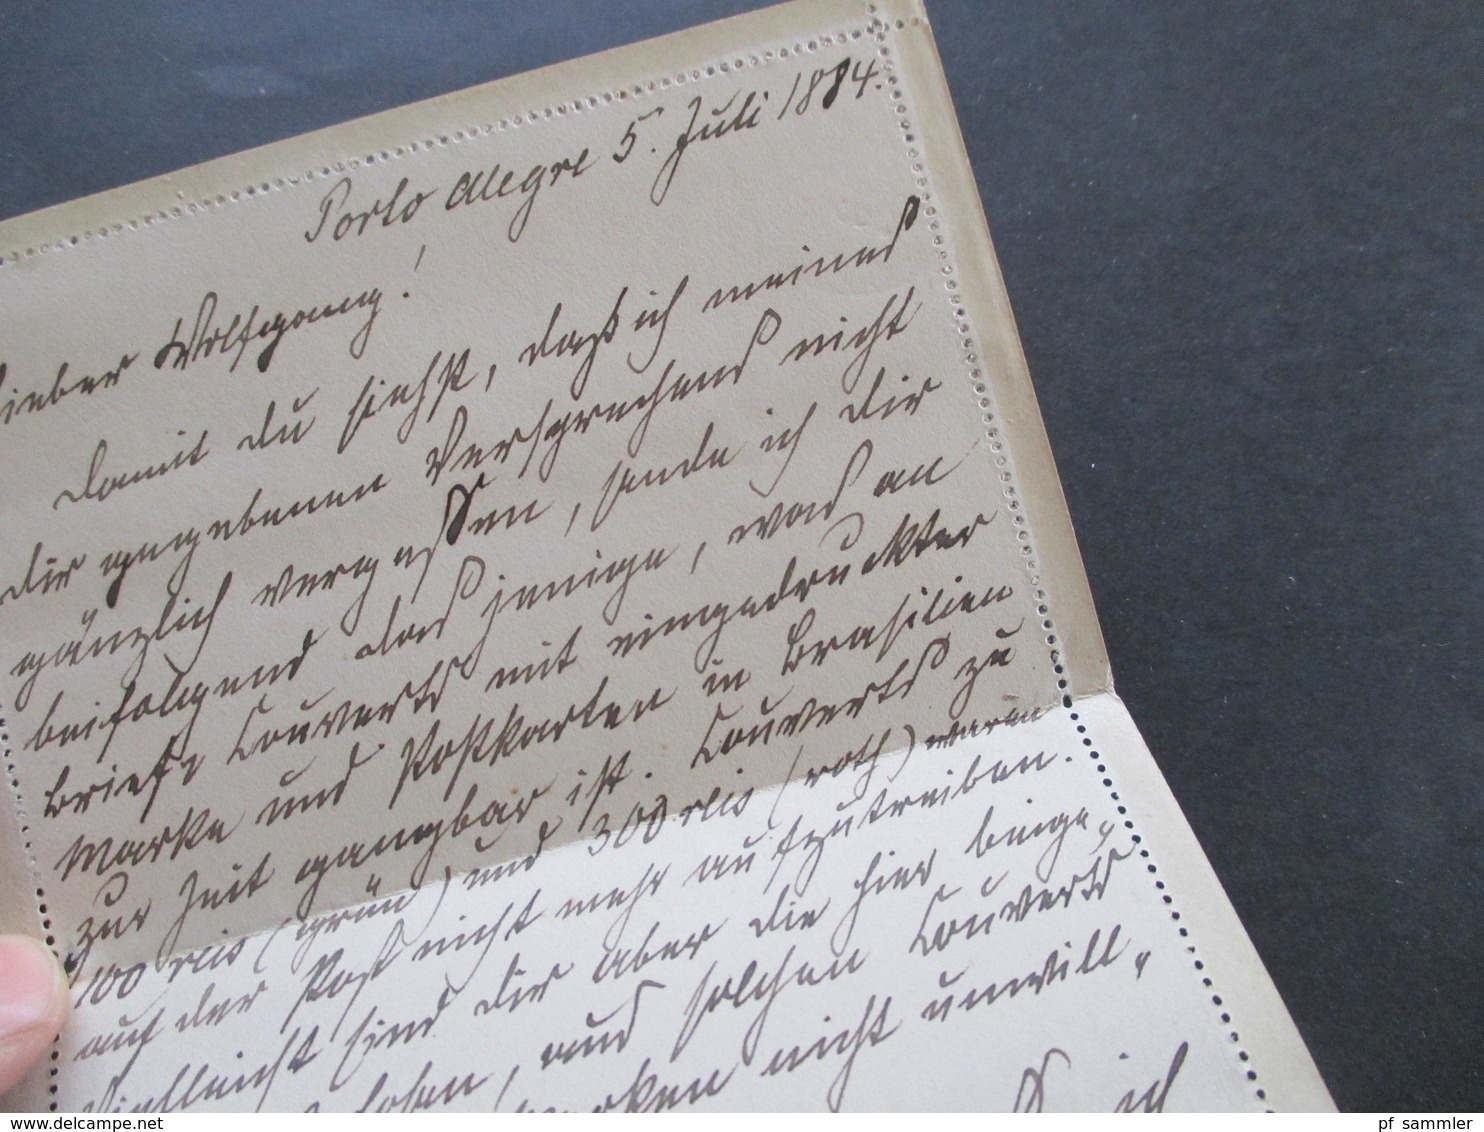 Porto Alegre 5. Juli 1884.
Lieber Wolfgang!
Damit du siehst, daß ich meines
dir gegebenen Versprechens nicht
gänzlich vergessen, sende ich dir
beifolgend dasjenige, was an
Briefe Couverts mit eingedruckter
Marke und Postkarten in Brasilien
zur Zeit gangbar ist. Couverts zu
100 reis (grün) und 300 reis (roth) waren
auf der Post nicht mehr aufzutreiben.
Vielleicht sind dir aber die hier beige„
aus solchen Couverts
nicht unwill„
ich
pf sammler